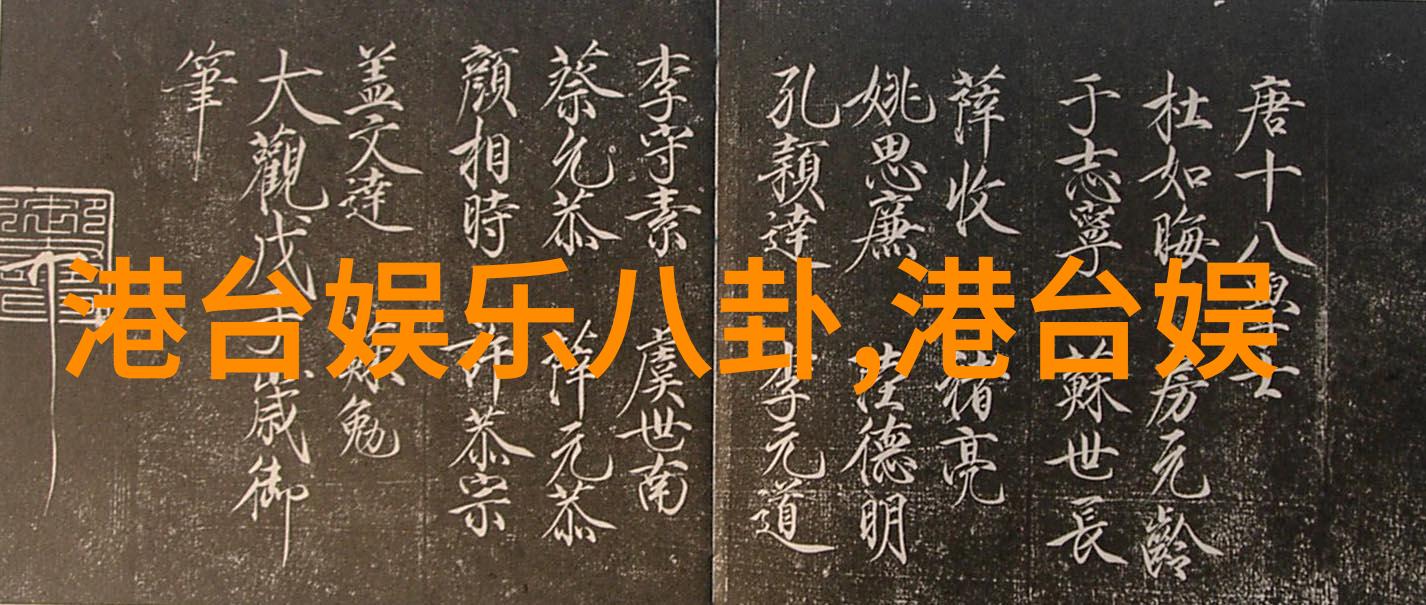 港台娱乐八卦,港台娱
唐十八學士
杜如晦 房元齡
于志寧 蘇世長
薛收 褚亮
姚思廉 陸德明
孔穎達 李元道
李守素 虞世南
蔡元恭 薛元恭
顏相時 許恭宗
盖文達 勉
大觀戊子歲御
筆